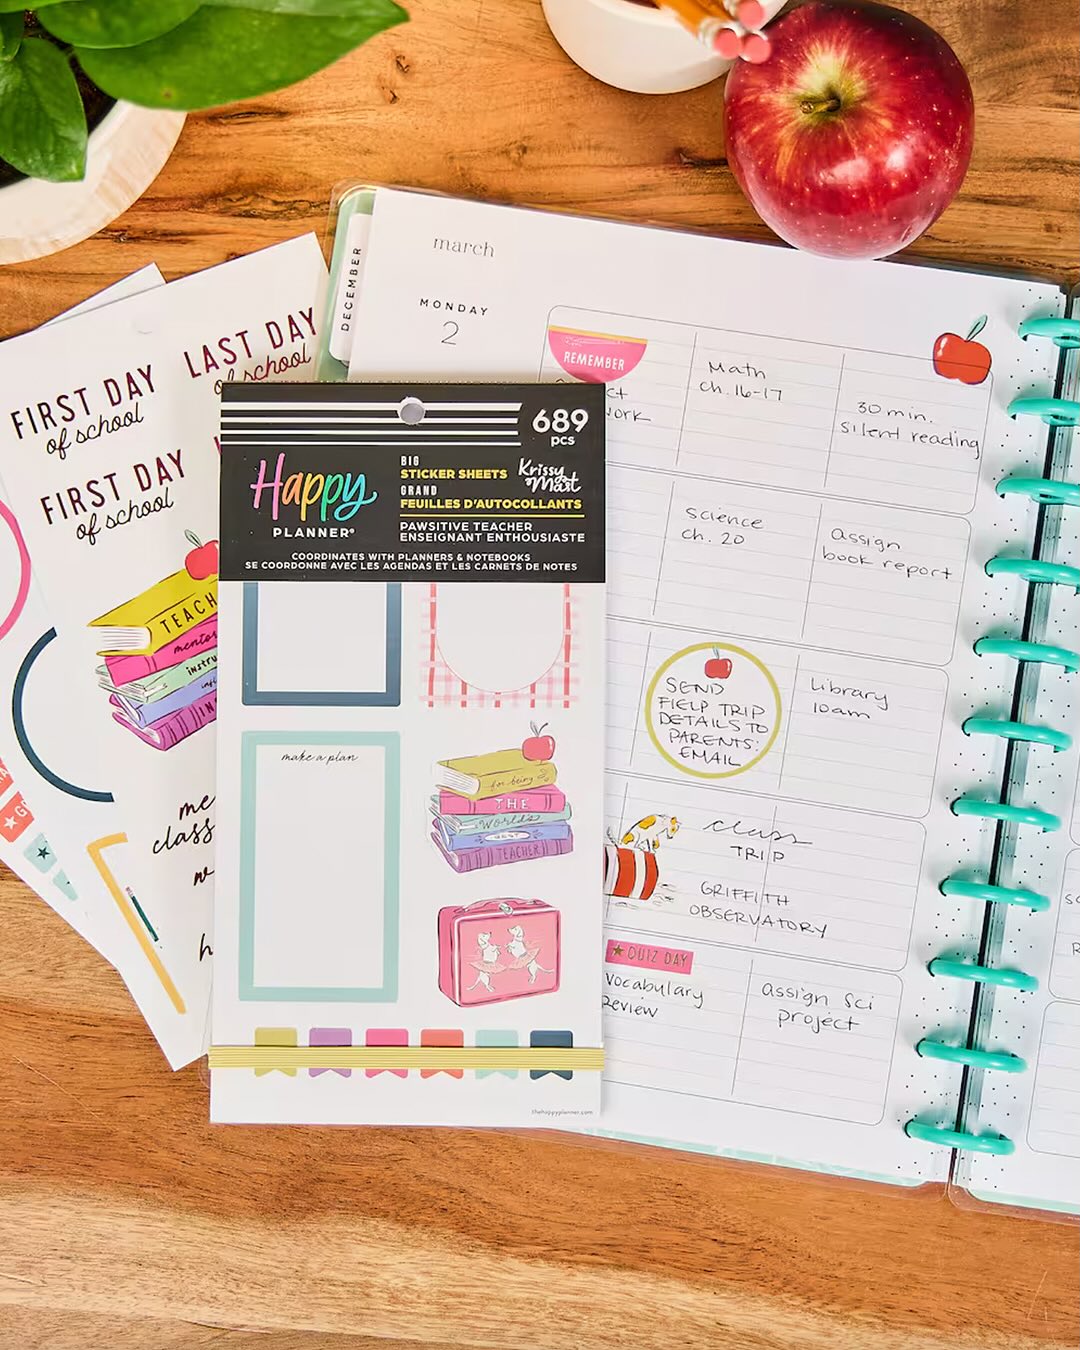 march
DECEMBER
MONDAY
2
REMEMBER
Math
ch. 16-17
30 min.
silent reading
science
ch. 20
assign
book report
SEND
FIELD TRIP
DETAILS TO
PARENTS:
EMAIL
Library
10am
class
TRIP
GRIFFITH
OBSERVATORY
QUIZ DAY
Vocabulary
Review
assign Sci
project
LAST DAY
of school
FIRST DAY
of school
FIRST DAY
of school
TEACH
mentor
instru
me
class
689
pcs
Happy
PLANNER®
BIG
STICKER SHEETS
GRAND
FEUILLES D'AUTOCOLLANTS
Krissy
Mast
PAWSITIVE TEACHER
ENSEIGNANT ENTHOUSIASTE
COORDINATES WITH PLANNERS & NOTEBOOKS
SE COORDONNE AVEC LES AGENDAS ET LES CARNETS DE NOTES
make a plan
for being
THE
World's
BEST
TEACHER
thehappyplanner.com